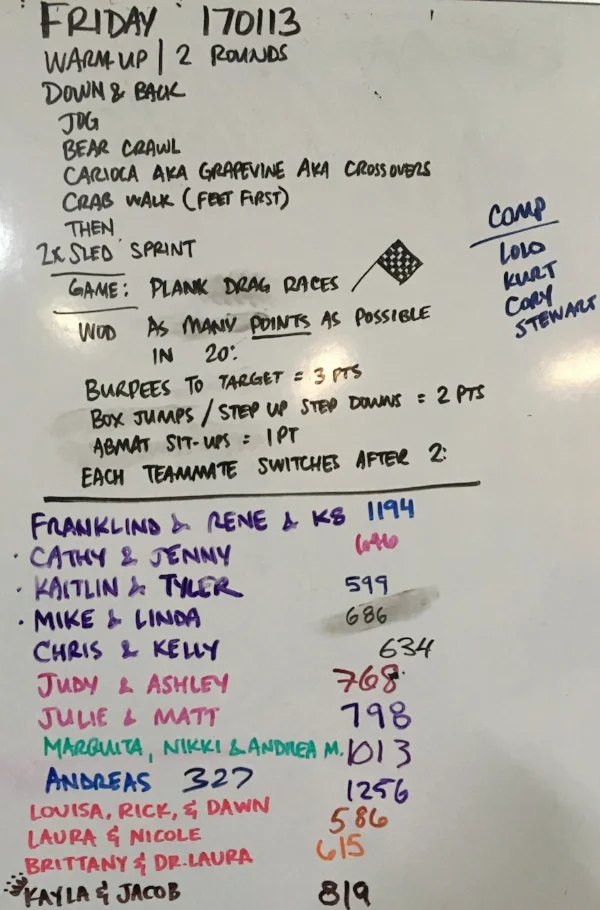 FRIDAY 170113
WARM UP | 2 ROUNDS
DOWN & BACK
JOG
BEAR CRAWL
CARIOCA AKA GRAPEVINE AKA CROSSOVERS
CRAB WALK (FEET FIRST)
THEN
2X SLED SPRINT
GAME: PLANK DRAG RACES
WOD AS MANY POINTS AS POSSIBLE
IN 20:
BURPEES TO TARGET = 3 PTS
BOX JUMPS / STEP UP STEP DOWNS = 2 PTS
ABMAT SIT-UPS = 1 PT
EACH TEAMMATE SWITCHES AFTER 2:
COMP
LOLO
KURT
CORY
STEWART
FRANKLIND & RENE & K8 1194
· CATHY & JENNY 696
· KAITLIN & TYLER 599
· MIKE & LINDA 686
CHRIS & KELLY 634
JUDY & ASHLEY 768
JULIE & MATT 798
MARQUITA, NIKKI & ANDREA M. 1013
ANDREAS 327
LOUISA, RICK, & DAWN 1256
LAURA & NICOLE 586
BRITTANY & DR. LAURA 615
KAYLA & JACOB 819